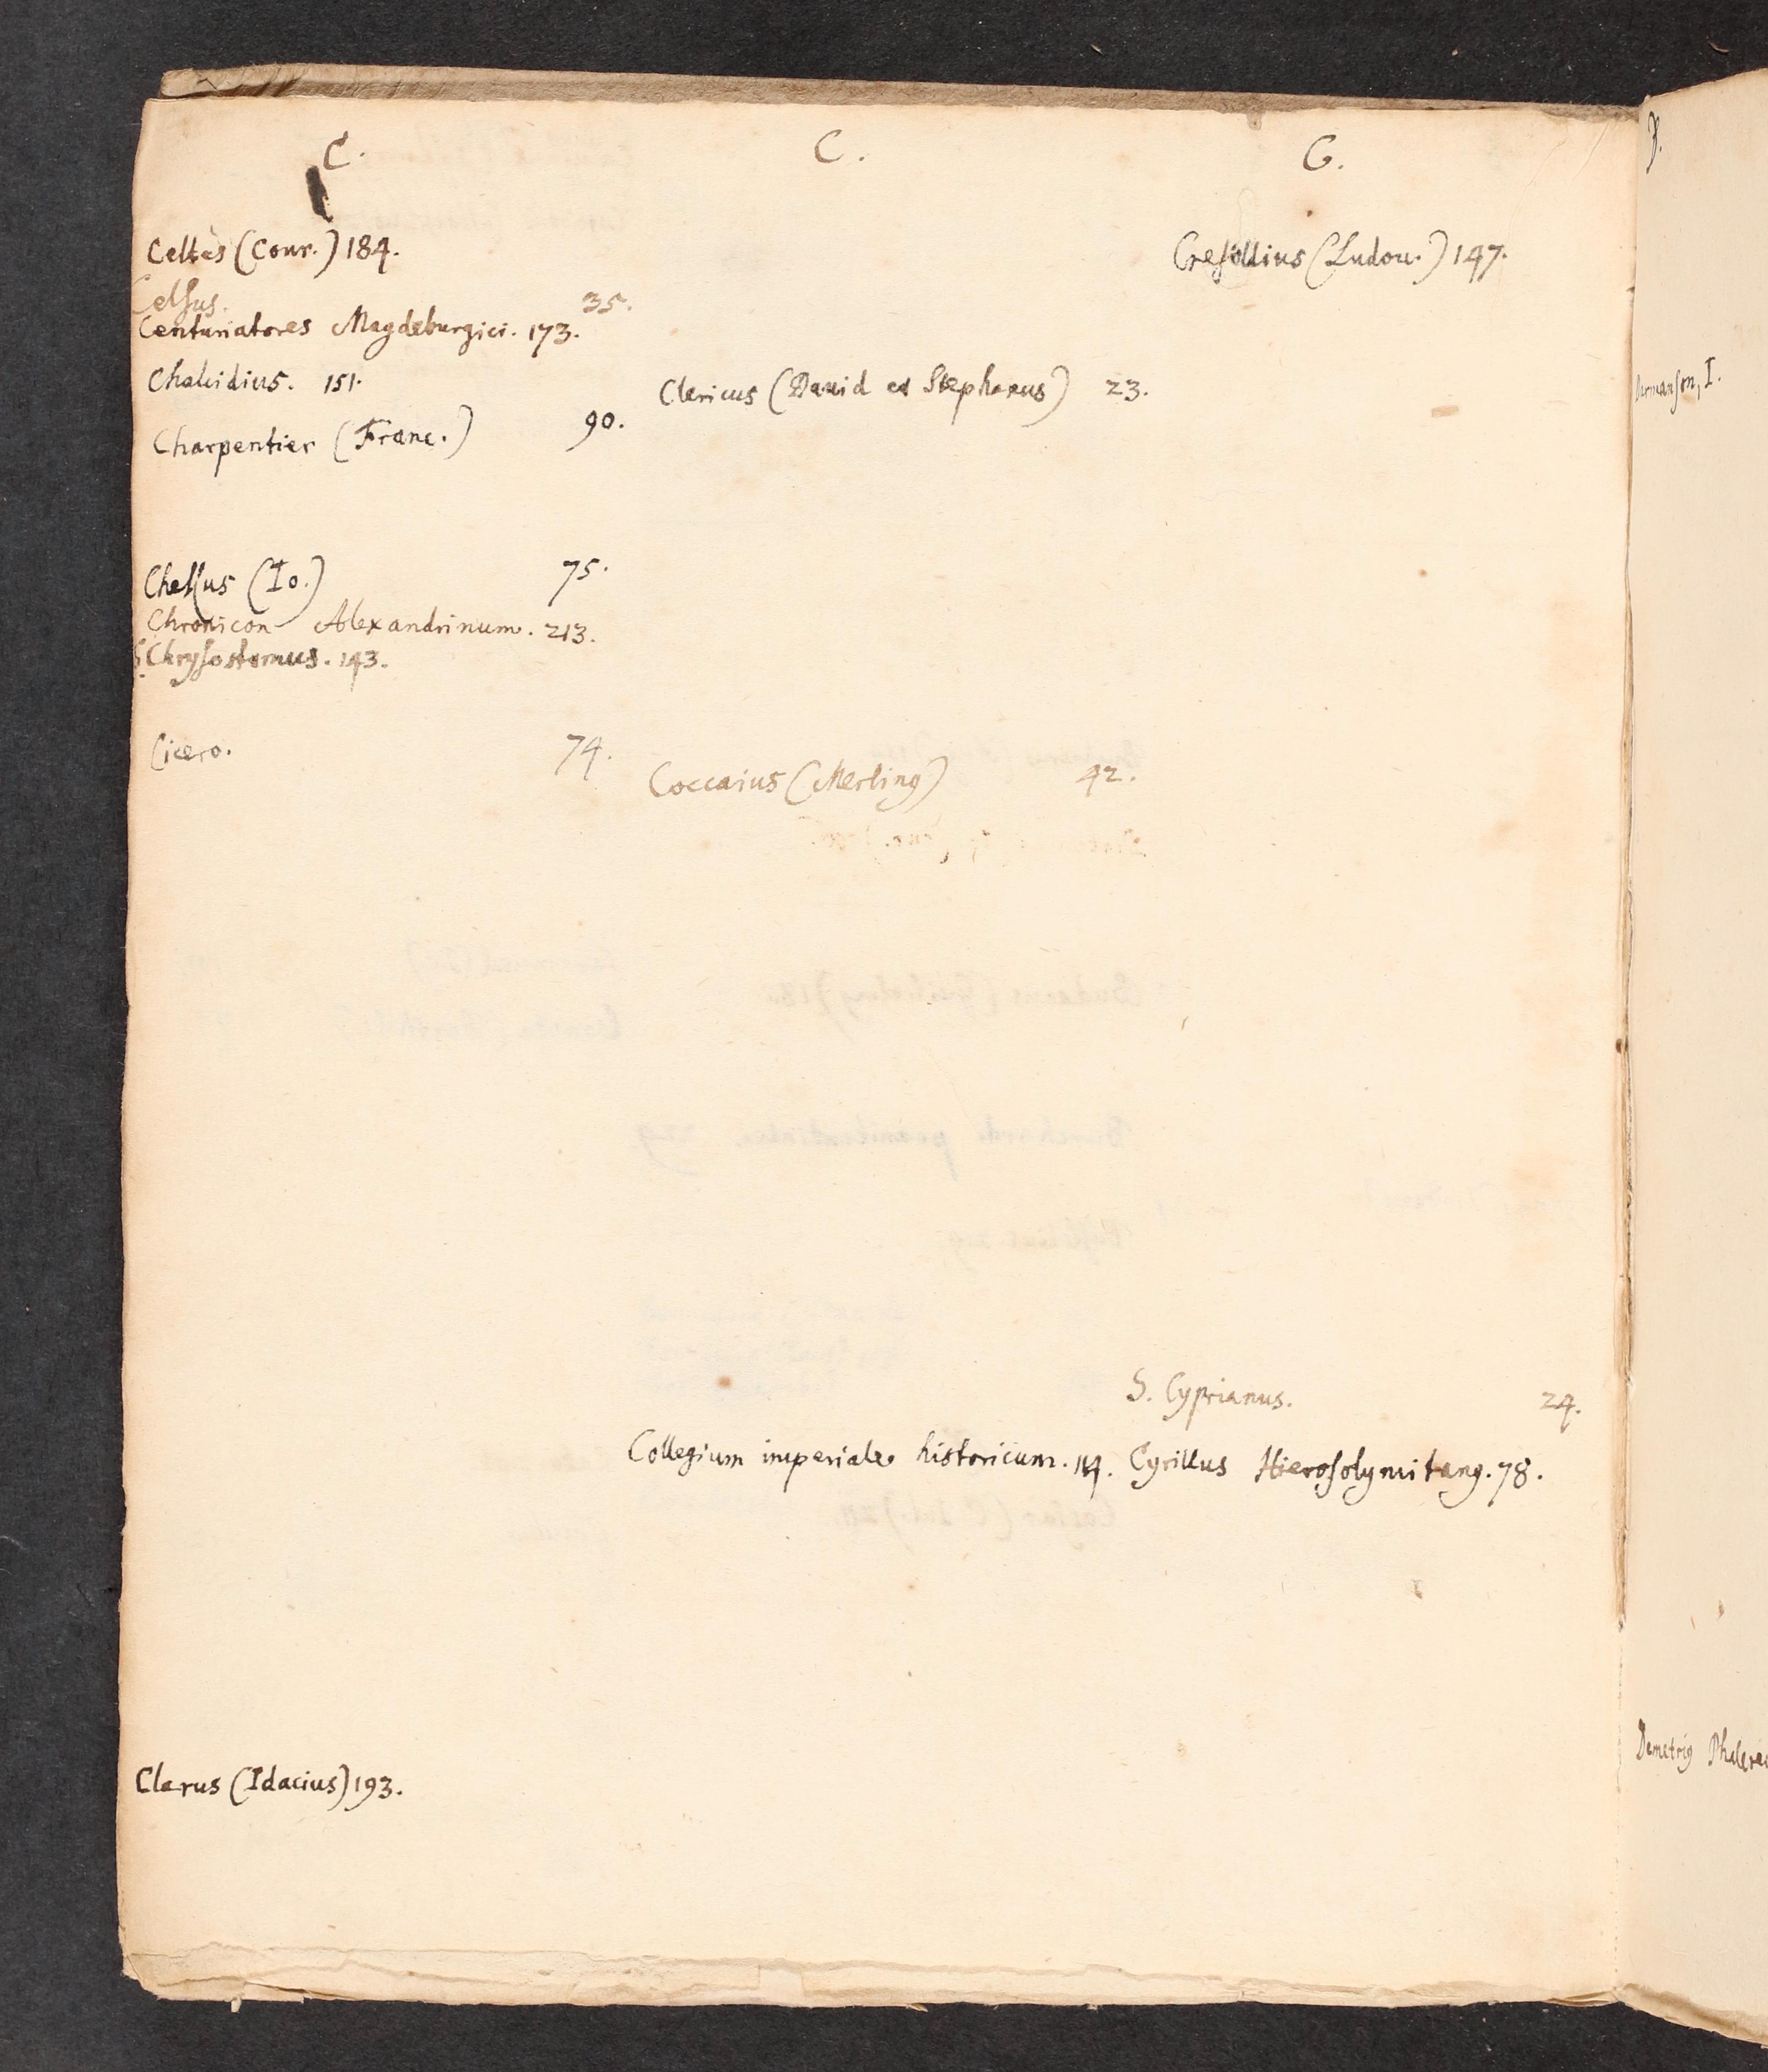 C.
Celtes (Conr.) 184.
Celsus. 35.
Centuriatores Magdeburgici. 173.
Chalcidius. 151.
Charpentier (Franc.) 90.
Chessus (Io.) 75.
Chronicon Alexandrinum. 213.
S. Chrysostomus. 143.
Cicero. 74.
Clarus (Idacius) 193.
C.
Clericus (Dauid et Stephanus) 23.
Coccaius (Merling) 42.
Collegium imperiale historicum. 114.
C.
Cresollius (Ludou.) 147.
S. Cyprianus. 24.
Cyrillus Hierosolymitang. 78.